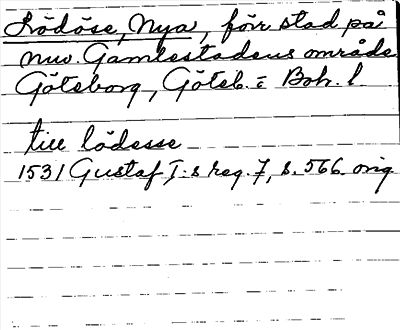 Lödöse, Nya, förr stad på
nuv. Gamlestadens område
Göteborg, Göteb. o Boh. l
till lödesse
1531 Gustaf I:s reg. 7, s. 566. orig